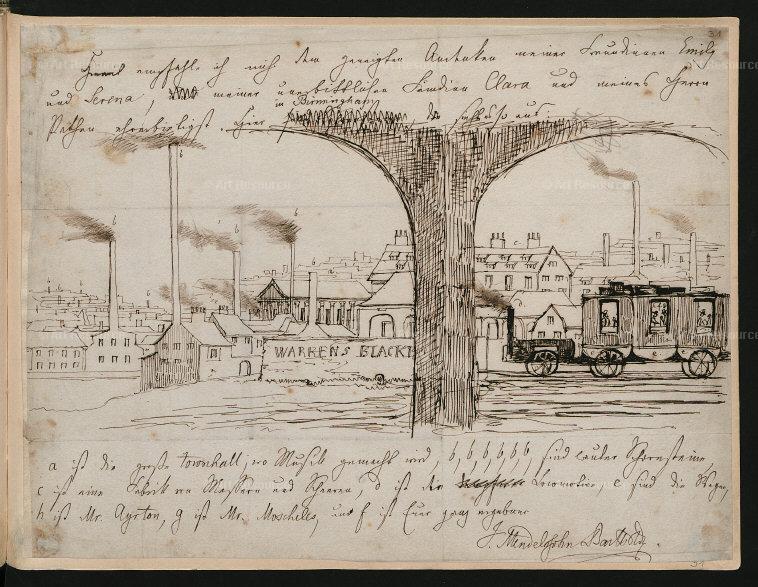 31
empfehle ich mich dem geneigten Andenken meiner Freundinnen Emily
und Serena, meiner unerbittlichen Feindin Clara und meines Herrn
Pathen ehrerbietigst. Hier
in Birmingham
aus.
b
b
b
b
b
a
c
WARRENS BLACK
e
a ist die große Townhall, wo Musik gemacht wird, b, b, b, b, b, b, sind lauter Schornsteine
c ist eine Fabrik von Messern und Scheren, d ist der Locomotive, e sind die Wagen,
h ist Mr. Ayrton, g ist Mr. Moscheles, und f ist Euer ganz ergebener
F. Mendelssohn Bartholdy.
31
© Art Resource